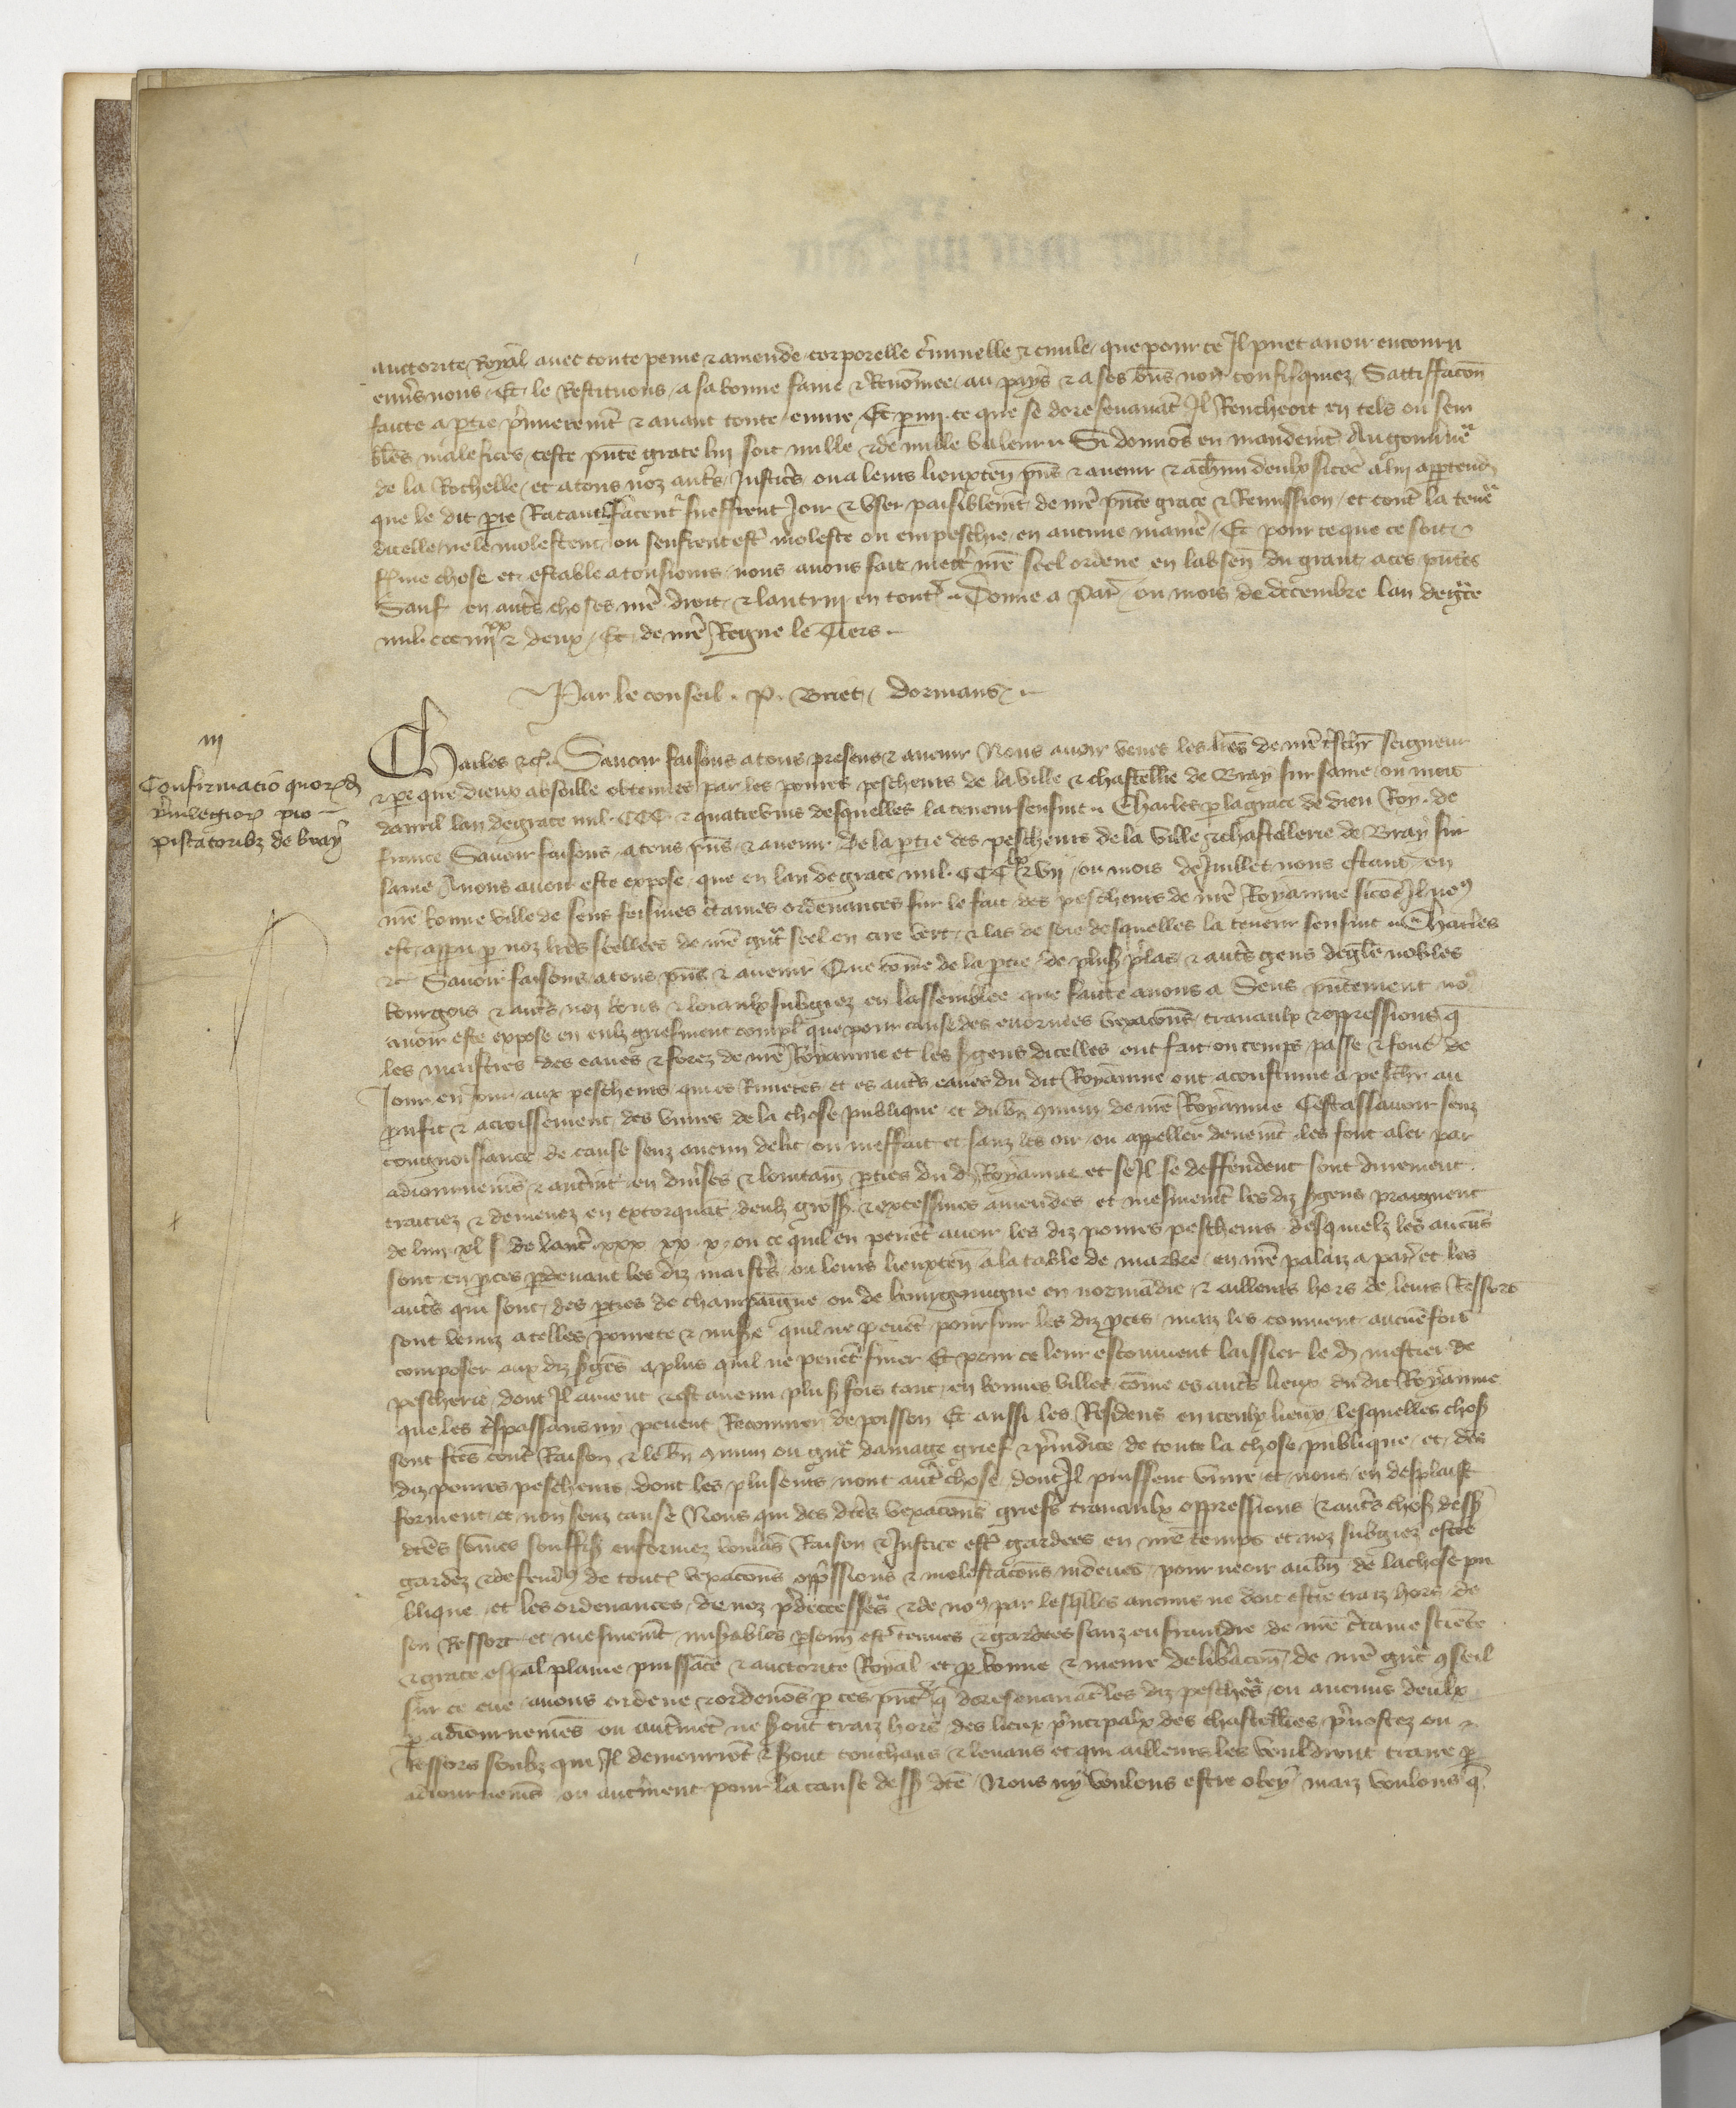 auctorite Royal avec toute peine & amende corporelle c̃iminelle & civile que pour ce Il puet avoir encouru
env̾s nous Et le Restituons a sa bonne fame & Renõmee au pays & a ses biẽs non confisquiez Sattiffacõn
faicte a p̱tie p̾mieremẽt & avant toute euure Et parmi ce que se doresenavãt Il Rencheoit en tels ou sem
blẽs malefices ceste pñte grace lui soit nulle & de nulle valeur Si donnõs en mandemẽt Au gouuñe
de la Rochelle et a tous noz aut̾s Justic̾s ou a leurs lieuxteñ pñs & avenir & a chũn deulx sicõe a lui app̱tendra
que le dit pier̾e Ratault facent sueffrent Joir & user paisiblemẽt de nr̃e pñte grace & Remission et cont̾ la teñe
dicelle ne le molestent ou seuffrent est̾ moleste ou empeschie en aucune manie̾ Et pour ce que ce soit
f̾me chose et estable a tousiours nous avons fait mett̾ nr̃e seel ordene en labseñ du grant a ces pñtes
Sauf en aut̾s choses nr̃e droit & lautrui en tout̾ Donne a Par̾ ou mois de decembre lan de gr̃ce
mil. ccc iiijxx & deux Et de nr̃e Regne le Tiers
Par le conseil . P. Briet Dormans
iij
Confirmatio quorũdã
p̾uilegiorũ pro
piscatoribʒ de bray
Charles &c̃. Savoir faisons a tous presens & avenir Nous avoir veues les lr̃es de nr̃e t̾schr̃ seigneur
& pe que dieux absoille obtenues par les poures pescheurs de la ville & chastellie de Bray sur saine ou mois
davril lan de grace mil. CCC. & quatrevins desquelles la teneur sensuit Charles p̱ la grace de dieu Roy de
france Savoir faisons a tous pñs & avenir De la p̱tie des pescheurs de la ville & chastellerie de Bray sur
saine A nous avoir este expose que en lan de grace mil. CCC lx & vij ou mois de Juillet nous estant en
nr̃e bonne ville de sens feismes c̾taines ordenances sur le fait des pescheurs de nr̃e Royaume sicõe Il no⁹
est apparu p̱ noz lr̃es seellees de nr̃e gñt seel en cire vert & las de soie desquelles la teneur sensuit Charles
&c̃ Savoir faisons a tous pñs & avenir Que cõme de la p̱tie de plus̾ p̾las & aut̾s gens degl̃e nobles
bourgois & aut̾s noz bons & loiaulx subgiez en lassemblee que faicte avons a Sens pñtement no⁹
avoir este expose en eulz griefment compl̾ que pour cause des enormes vexacõns travaulx & oppressions q̃
les maistres des eaues & forez de nr̃e Royaume et les s̾gens dicelles ont fait ou temps passe & font de
Jour en Jour aux pescheurs qui es Rivieres et es aut̾s eaues du dit Royaume ont acoustume a peschr̃ au
prouffit & acroissement des vivres de la chose publique et du bñ ꝯmun de nr̃e Royaume Cestassavoir senz
congnoissance de cause senz aucun delit ou meffait et sanz les oir ou appeller deuemẽt les font aler par
adiournemẽs & aut̾mẽt en div̾ses & lointaiñ p̱ties du d̾ Royaume et se Il se deffendent sont durement
traictiez & demenez en extorquãt deulz gross̾ & excessives amendes et mesmemẽt les diz s̾gens praignent
de lun xl s̾ de laut̾ xxx xx x ou ce quil en peuẽt avoir les diz poures pescheurs desquielz les aucũs
sont en p̱ces p̱devant les diz maist̾s ou leurs lieuxteñ a la table de marbre en nr̃e palaiz a par̾ et les
aut̾s qui sont des p̱ties de champaigne ou de bourgoingne en normãdie & ailleurs hors de leurs Ressors
sont venuz a telles povrete & mis̾e quil ne peuẽt poursuir les diz p̱ces maiz les convient aucuẽfois
composer aux diz s̾gẽs a plus quil ne peuẽt finer Et pour ce leur escouvient laissier le d̾ mestier de
pescherie dont Il avient & est avenu plus̾ fois tant en bonnes villes cõme es aut̾s lieux du dit Royaume
que les t̾spassans ny peuent Recouvrer de poisson Et aussi les Residens en iceulx lieux lesquelles chos̾
sont f̃tes cont̾ Raison & le bñ ꝯmun ou gñt damage grief & p̾iudice de toute la chose publique et des
diz poures pescheurs dont les pluseurs nont aut̾ chose dont Il puissent vivre et nous en desplaist
forment et non senz cause Nous qui des dc̃es vexacõns griefs travaulx oppressions & aut̾s chos̾ dess̾
dc̃es sõmes souffis̾ enformez voulãs Raison & Justice est̾ gardees en nr̃e temps et noz subgiez estre
gardez & defend⁹ de tout̾ vexacõns opp̾ssions & molestacõns indeues pour veoir au bñ de la chose pu
blique et les ordenances de noz p̾decesses̾ & de no⁹ par lesq̾lles aucuns ne doit estre traiz hors de
son Ressort et mesmemẽt mis̾ables p̱sonñ est̾ tenues & gardees sanz enfraindre de nr̃e c̾taine sciẽce
& grace esp̃al plaine puissãce & auctorite Royal et p̱ bonne & meure delib̾acõn de nr̃e gñt ꝯseil
sur ce eue avons ordene & ordenõs p̱ ces pñt̾ q̃ doresenavãt les diz peschẽs ou aucuns deulx
p̱ adiournemẽs ou aut̾mẽt ne s̾ont traiz hors des lieux p̾ncipalx des chastellies p̾vostez ou
Ressors soubz qui Il demourrõt & s̾ont couchans & levans et qui ailleurs les vouldront traire p̱
adiournemẽs ou aut̾ment pour la cause dess̾ dc̃e Nous ny voulons estre obey maiz voulons q̃